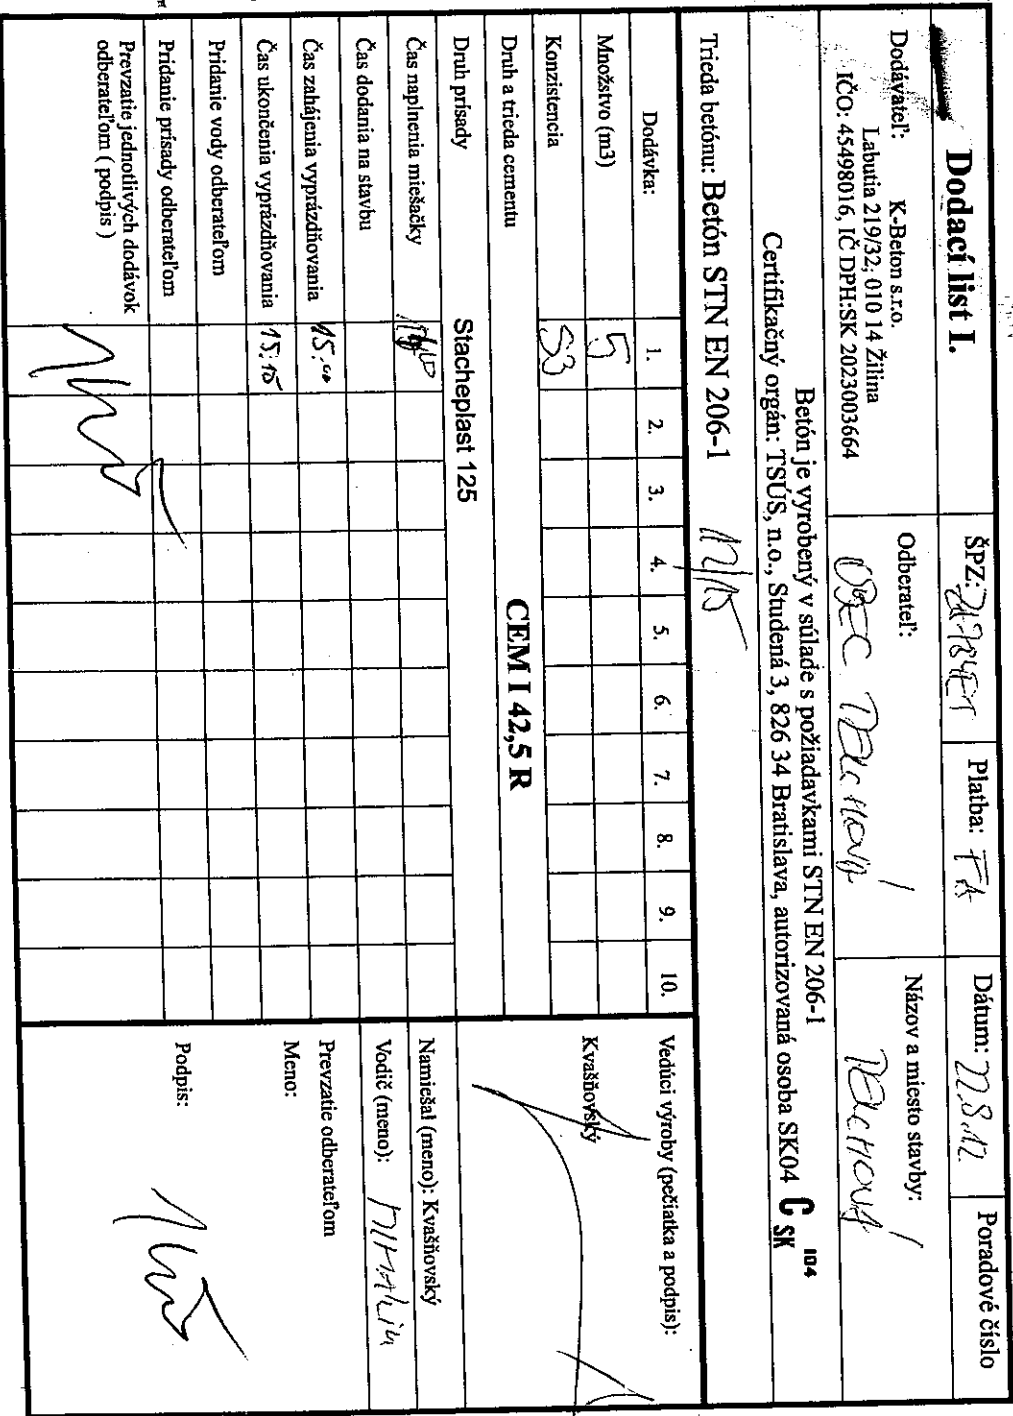 Dodací list I.
ŠPZ:
Platba: FA
Dátum: 22.8.12
Poradové číslo
Dodávateľ: K-Beton s.r.o.
Labutia 219/32; 010 14 Žilina
IČO: 45498016, IČ DPH:SK 2023003664
Odberateľ:
OBEC
Názov a miesto stavby:
Betón je vyrobený v súlade s požiadavkami STN EN 206-1
Certifikačný orgán: TSÚS, n.o., Studená 3, 826 34 Bratislava, autorizovaná osoba SK04 C SK 104
Trieda betónu: Betón STN EN 206-1 12/15
Dodávka: 1. 2. 3. 4. 5. 6. 7. 8. 9. 10.
Množstvo (m3) 5
Konzistencia S3
Druh a trieda cementu CEM I 42,5 R
Druh prísady Stacheplast 125
Čas naplnenia miešačky
Čas dodania na stavbu
Čas zahájenia vyprázdňovania 15:00
Čas ukončenia vyprázdňovania 15:15
Pridanie vody odberateľom
Pridanie prísady odberateľom
Prevzatie jednotlivých dodávok
odberateľom ( podpis )
Vedúci výroby (pečiatka a podpis):
Kvašňovský
Namiešal (meno): Kvašňovský
Vodič (meno):
Prevzatie odberateľom
Meno:
Podpis: